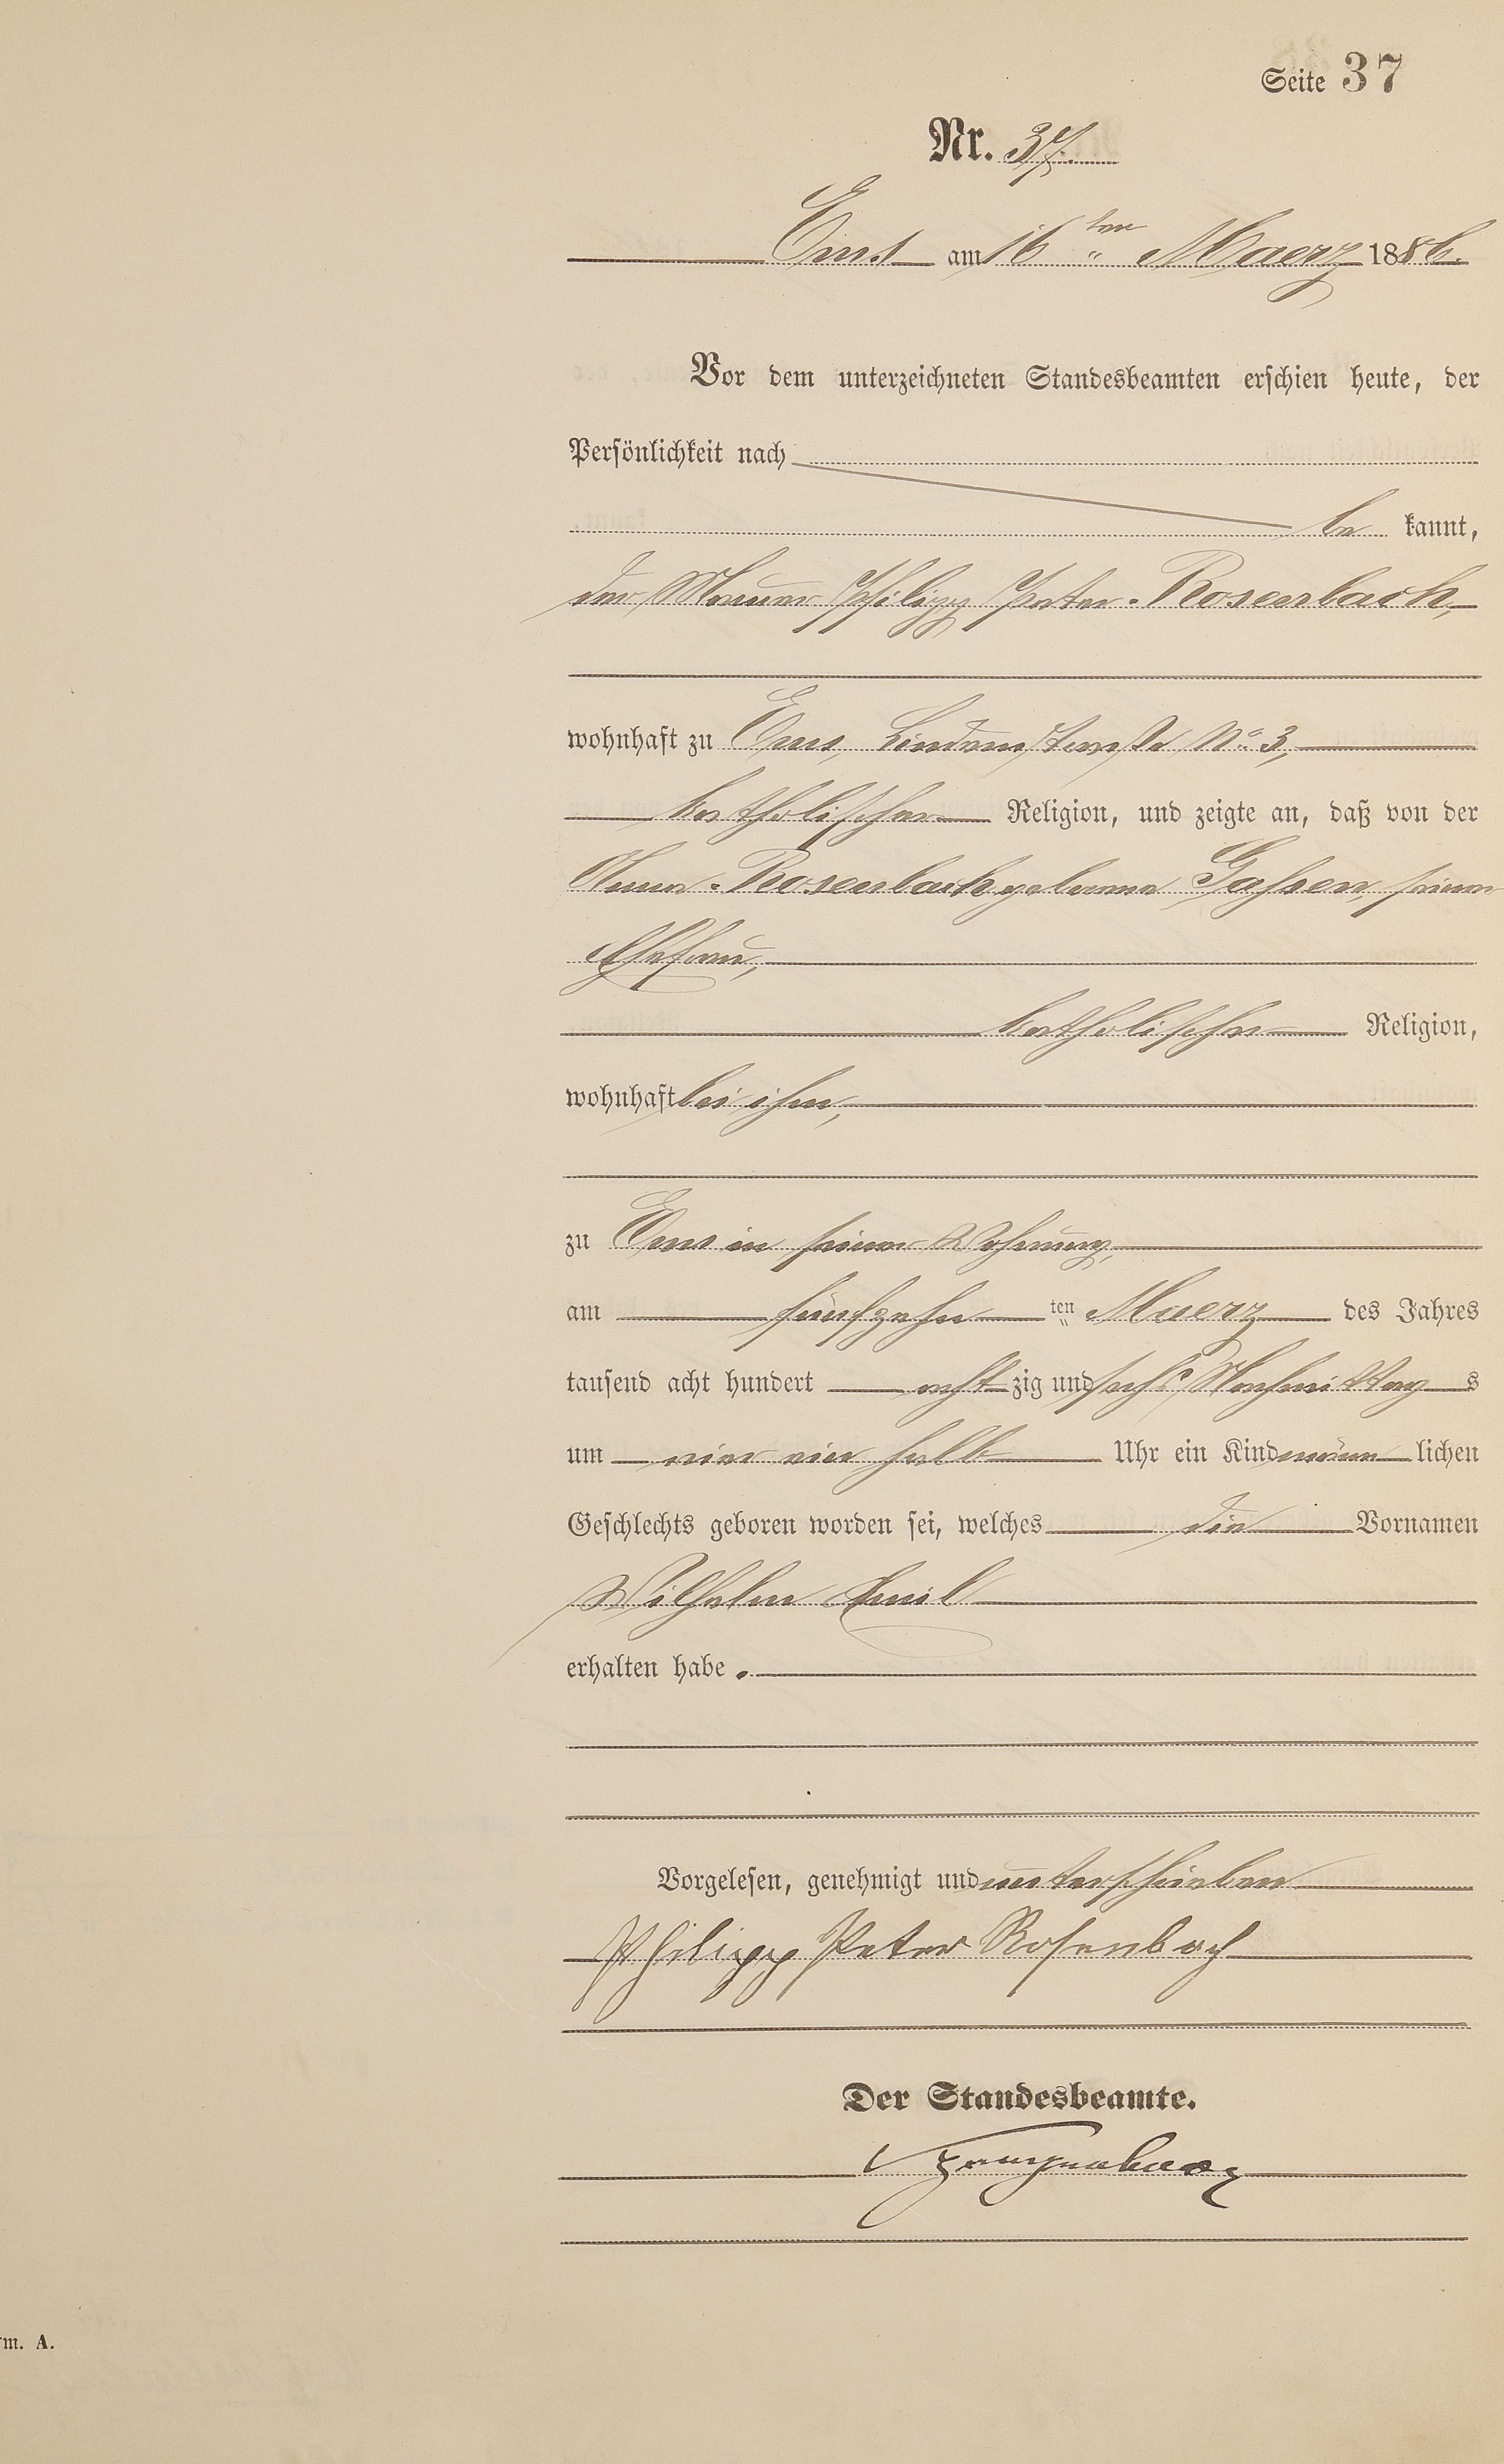 Seite 37
Nr. 37.
Ems am 16 ten Maerz 1886.
Vor dem unterzeichneten Standesbeamten erschien heute, der
Persönlichkeit nach
be kannt,
der Maurer Philipp Peter Rosenbach,
wohnhaft zu Ems, Lindenstraße No. 3,
katholischer Religion, und zeigte an, daß von der
Anna Rosenbach geborene Gassen, seiner
Ehefrau,
katholischer Religion,
wohnhaft bei ihm,
zu Ems in seiner Wohnung,
am fünfzehn ten Maerz des Jahres
tausend acht hundert acht zig und sechs Nachmittag s
um vier ein halb Uhr ein Kind männ lichen
Geschlechts geboren worden sei, welches die Vornamen
Wilhelm Emil
erhalten habe.
Vorgelesen, genehmigt und unterschrieben
Philipp Peter Rosenbach
Der Standesbeamte.
m. A.